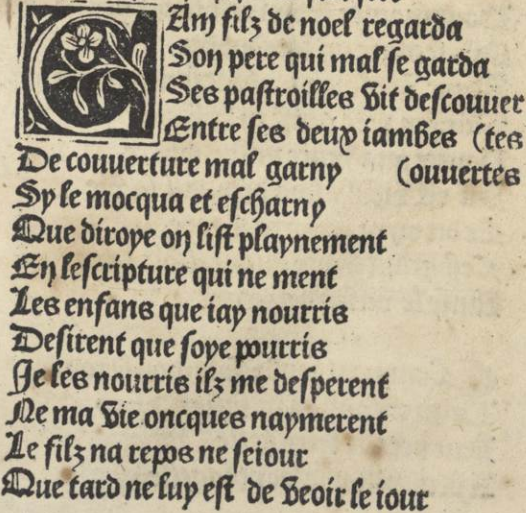 CAm filz de noel regarda
Son pere qui mal se garda
Ses pastroilles vit descouuer
Entre ses deux iambes (tes
De couuerture mal garny (ouuertes
Sy le mocqua et escharny
Que diroye on list playnement
En lescripture qui ne ment
Les enfans que iay nourris
Desirent que soye pourris
Je les nourris ilz me desperent
Ne ma vie oncques naymerent
Le filz na repos ne seiour
Que tard ne luy est de veoir le iour